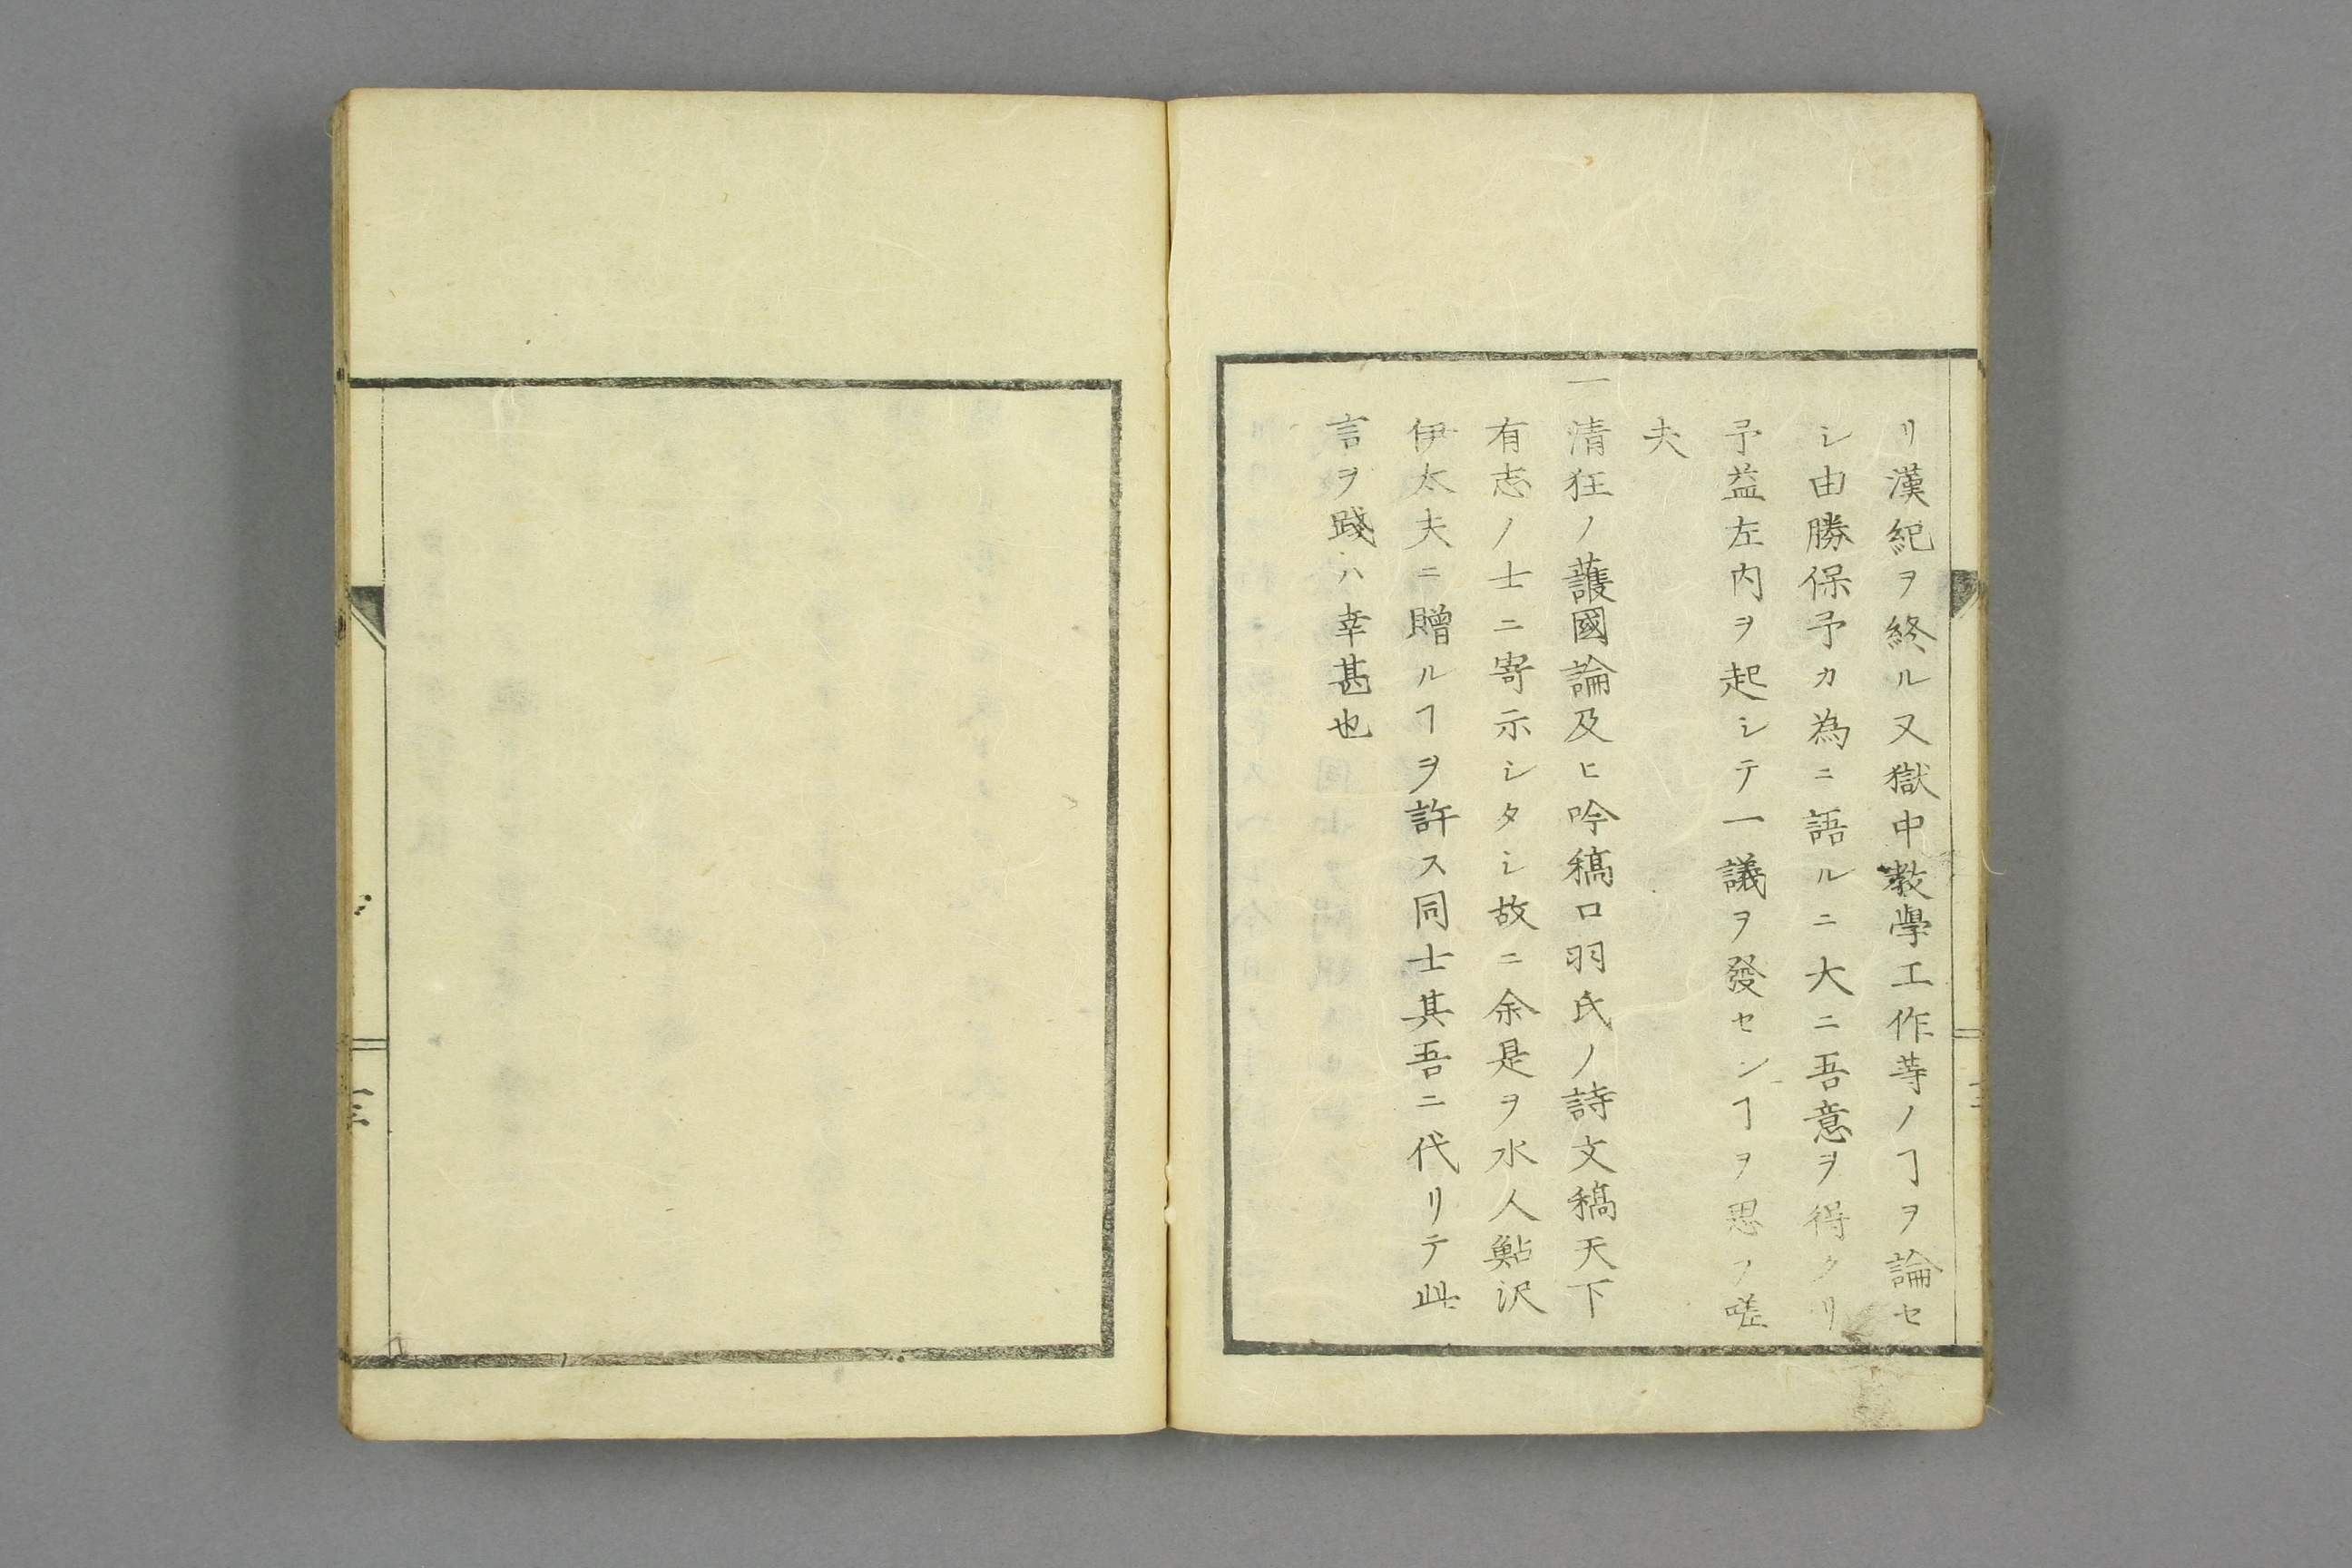 リ漢紀ヲ終ル又獄中教學工作等ノヿヲ論セ
シ由勝保予カ為ニ語ルニ大ニ吾意ヲ得タリ
予益左内ヲ起シテ一議ヲ發センヿヲ思フ嗟
夫
一清狂ノ護國論及ヒ吟稿口羽氏ノ詩文稿天下
有志ノ士ニ寄示シタシ故ニ余是ヲ水人鮎沢
伊太夫ニ贈ルヿヲ許ス同士其吾ニ代リテ此
言ヲ踐ハ幸甚也